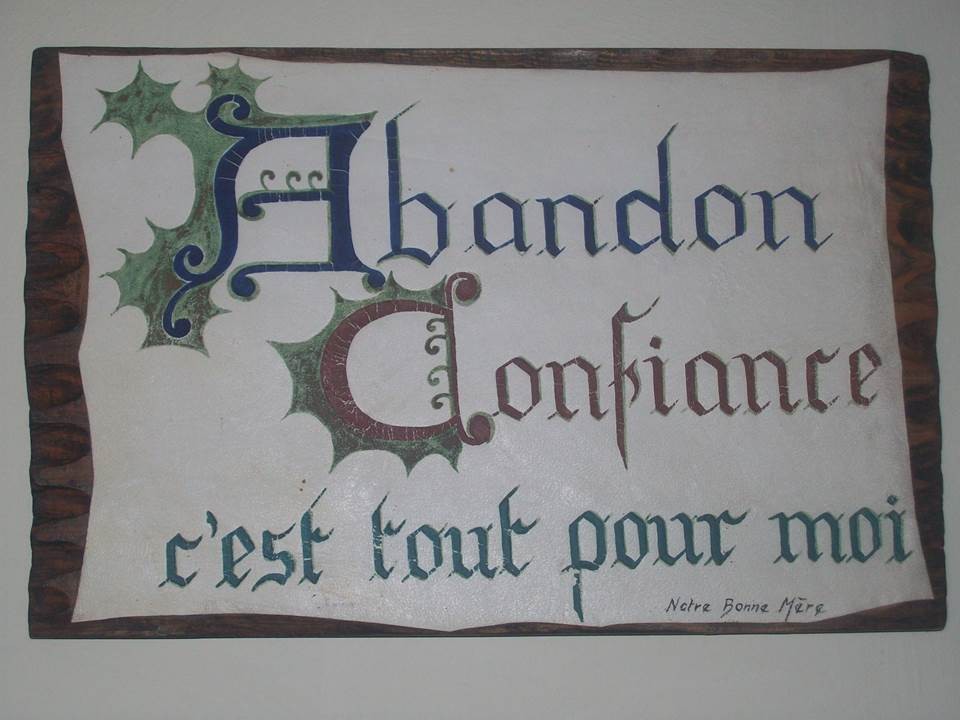 Abandon
Confiance
c'est tout pour moi
Notre Bonne Mère